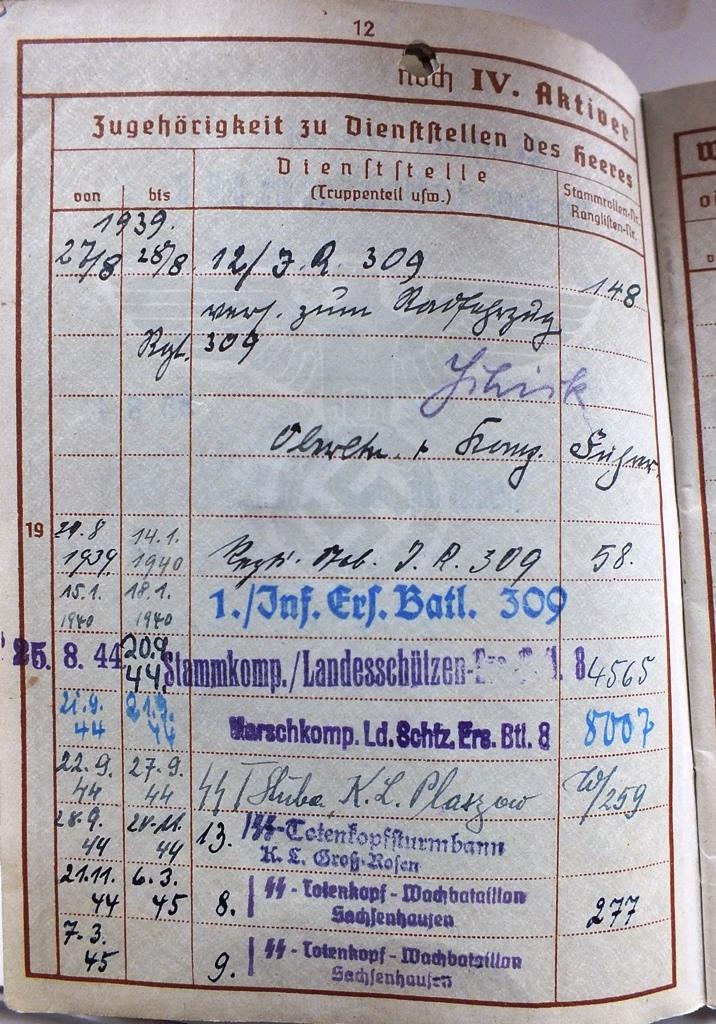 12
noch IV. Aktiver
Zugehörigkeit zu Dienststellen des Heeres
von bis Dienststelle (Truppenteil usw.) Stammrollen-Nr. Ranglisten-Nr.
1939.
27/8 28/8 12/J.R. 309 148
vers. zum Radfahrzug
Rgt. 309
Oberltn. u. Komp. Führer
19 29.8 1939 14.1. 1940 Regts. Stab. J.R. 309 58.
15.1. 1940 18.1. 1940 1./Inf. Ers. Batl. 309
25. 8. 44 20.9. 44 Stammkomp./Landesschützen- 8 4565
21.9. 44 21.9. 44 Marschkomp. Ld. Schtz. Ers. Btl. 8 8007
22.9. 44 27.9. 44 SS K.L. Plaszow W/259
28.9. 44 20.11. 44 13. / SS-Totenkopfsturmbann
K. L. Groß-Rosen
21.11. 44 6.3. 45 8. | SS-Totenkopf-Wachbataillon 277
Sachsenhausen
7.3. 45 9. | SS-Totenkopf-Wachbataillon
Sachsenhausen